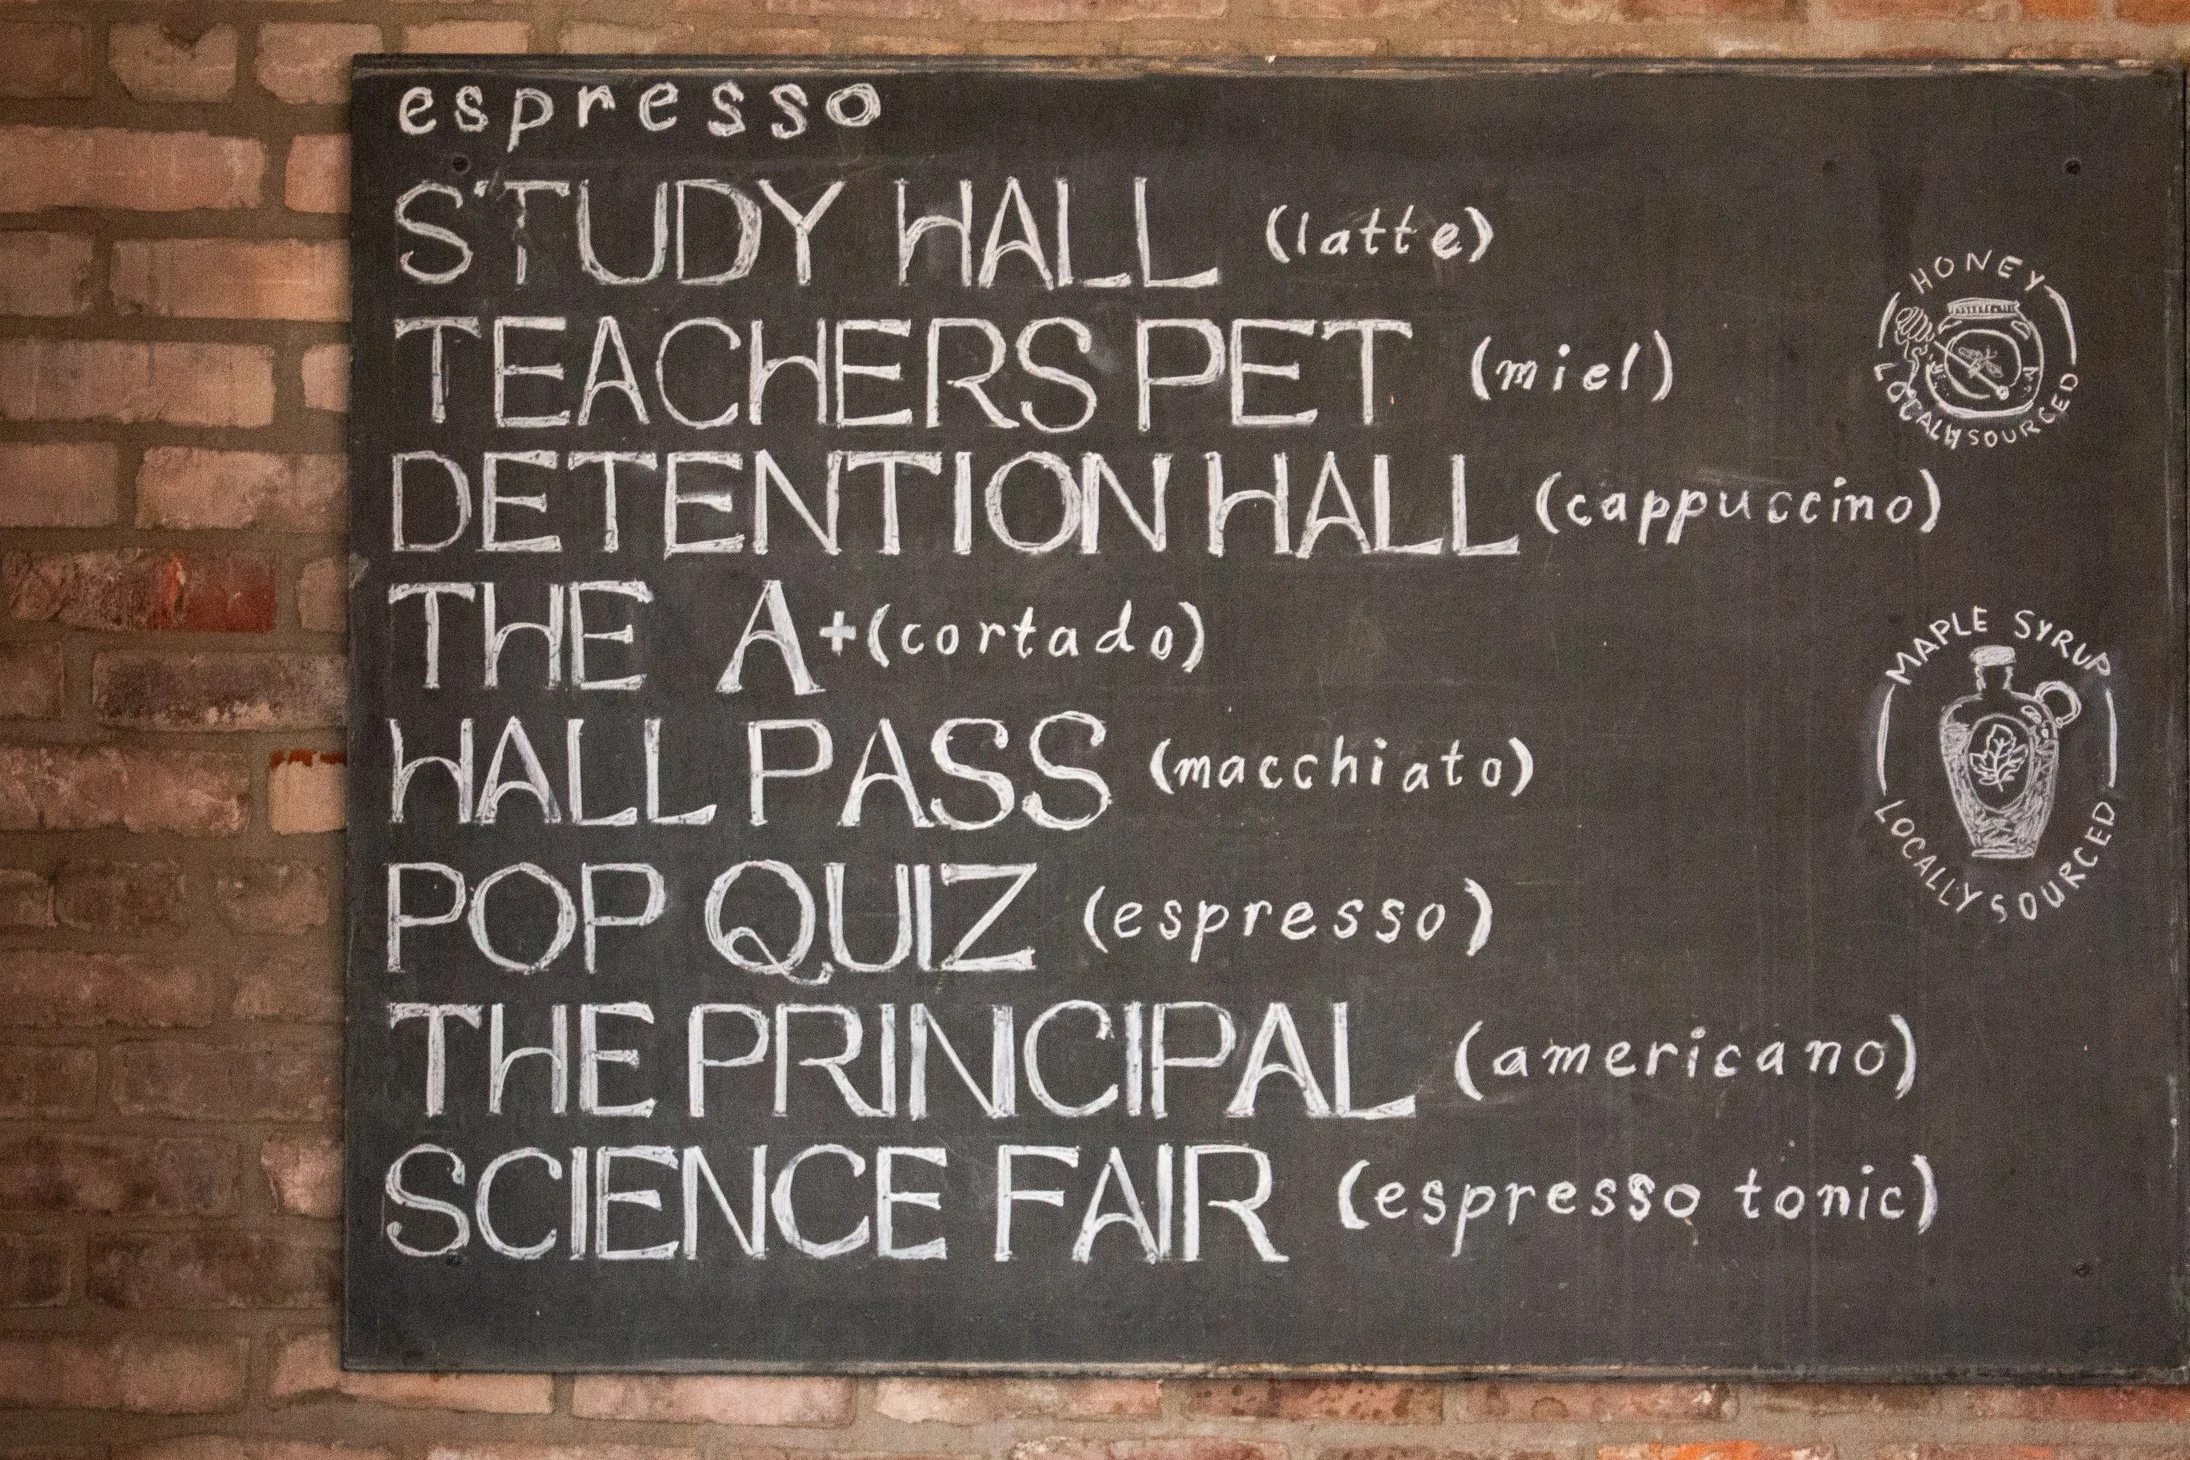 espresso
STUDY HALL (latte)
TEACHERS PET (miel)
DETENTION HALL (cappuccino)
THE A+ (cortado)
HALL PASS (macchiato)
POP QUIZ (espresso)
THE PRINCIPAL (americano)
SCIENCE FAIR (espresso tonic)
HONEY
LOCALLY SOURCED
MAPLE SYRUP
LOCALLY SOURCED